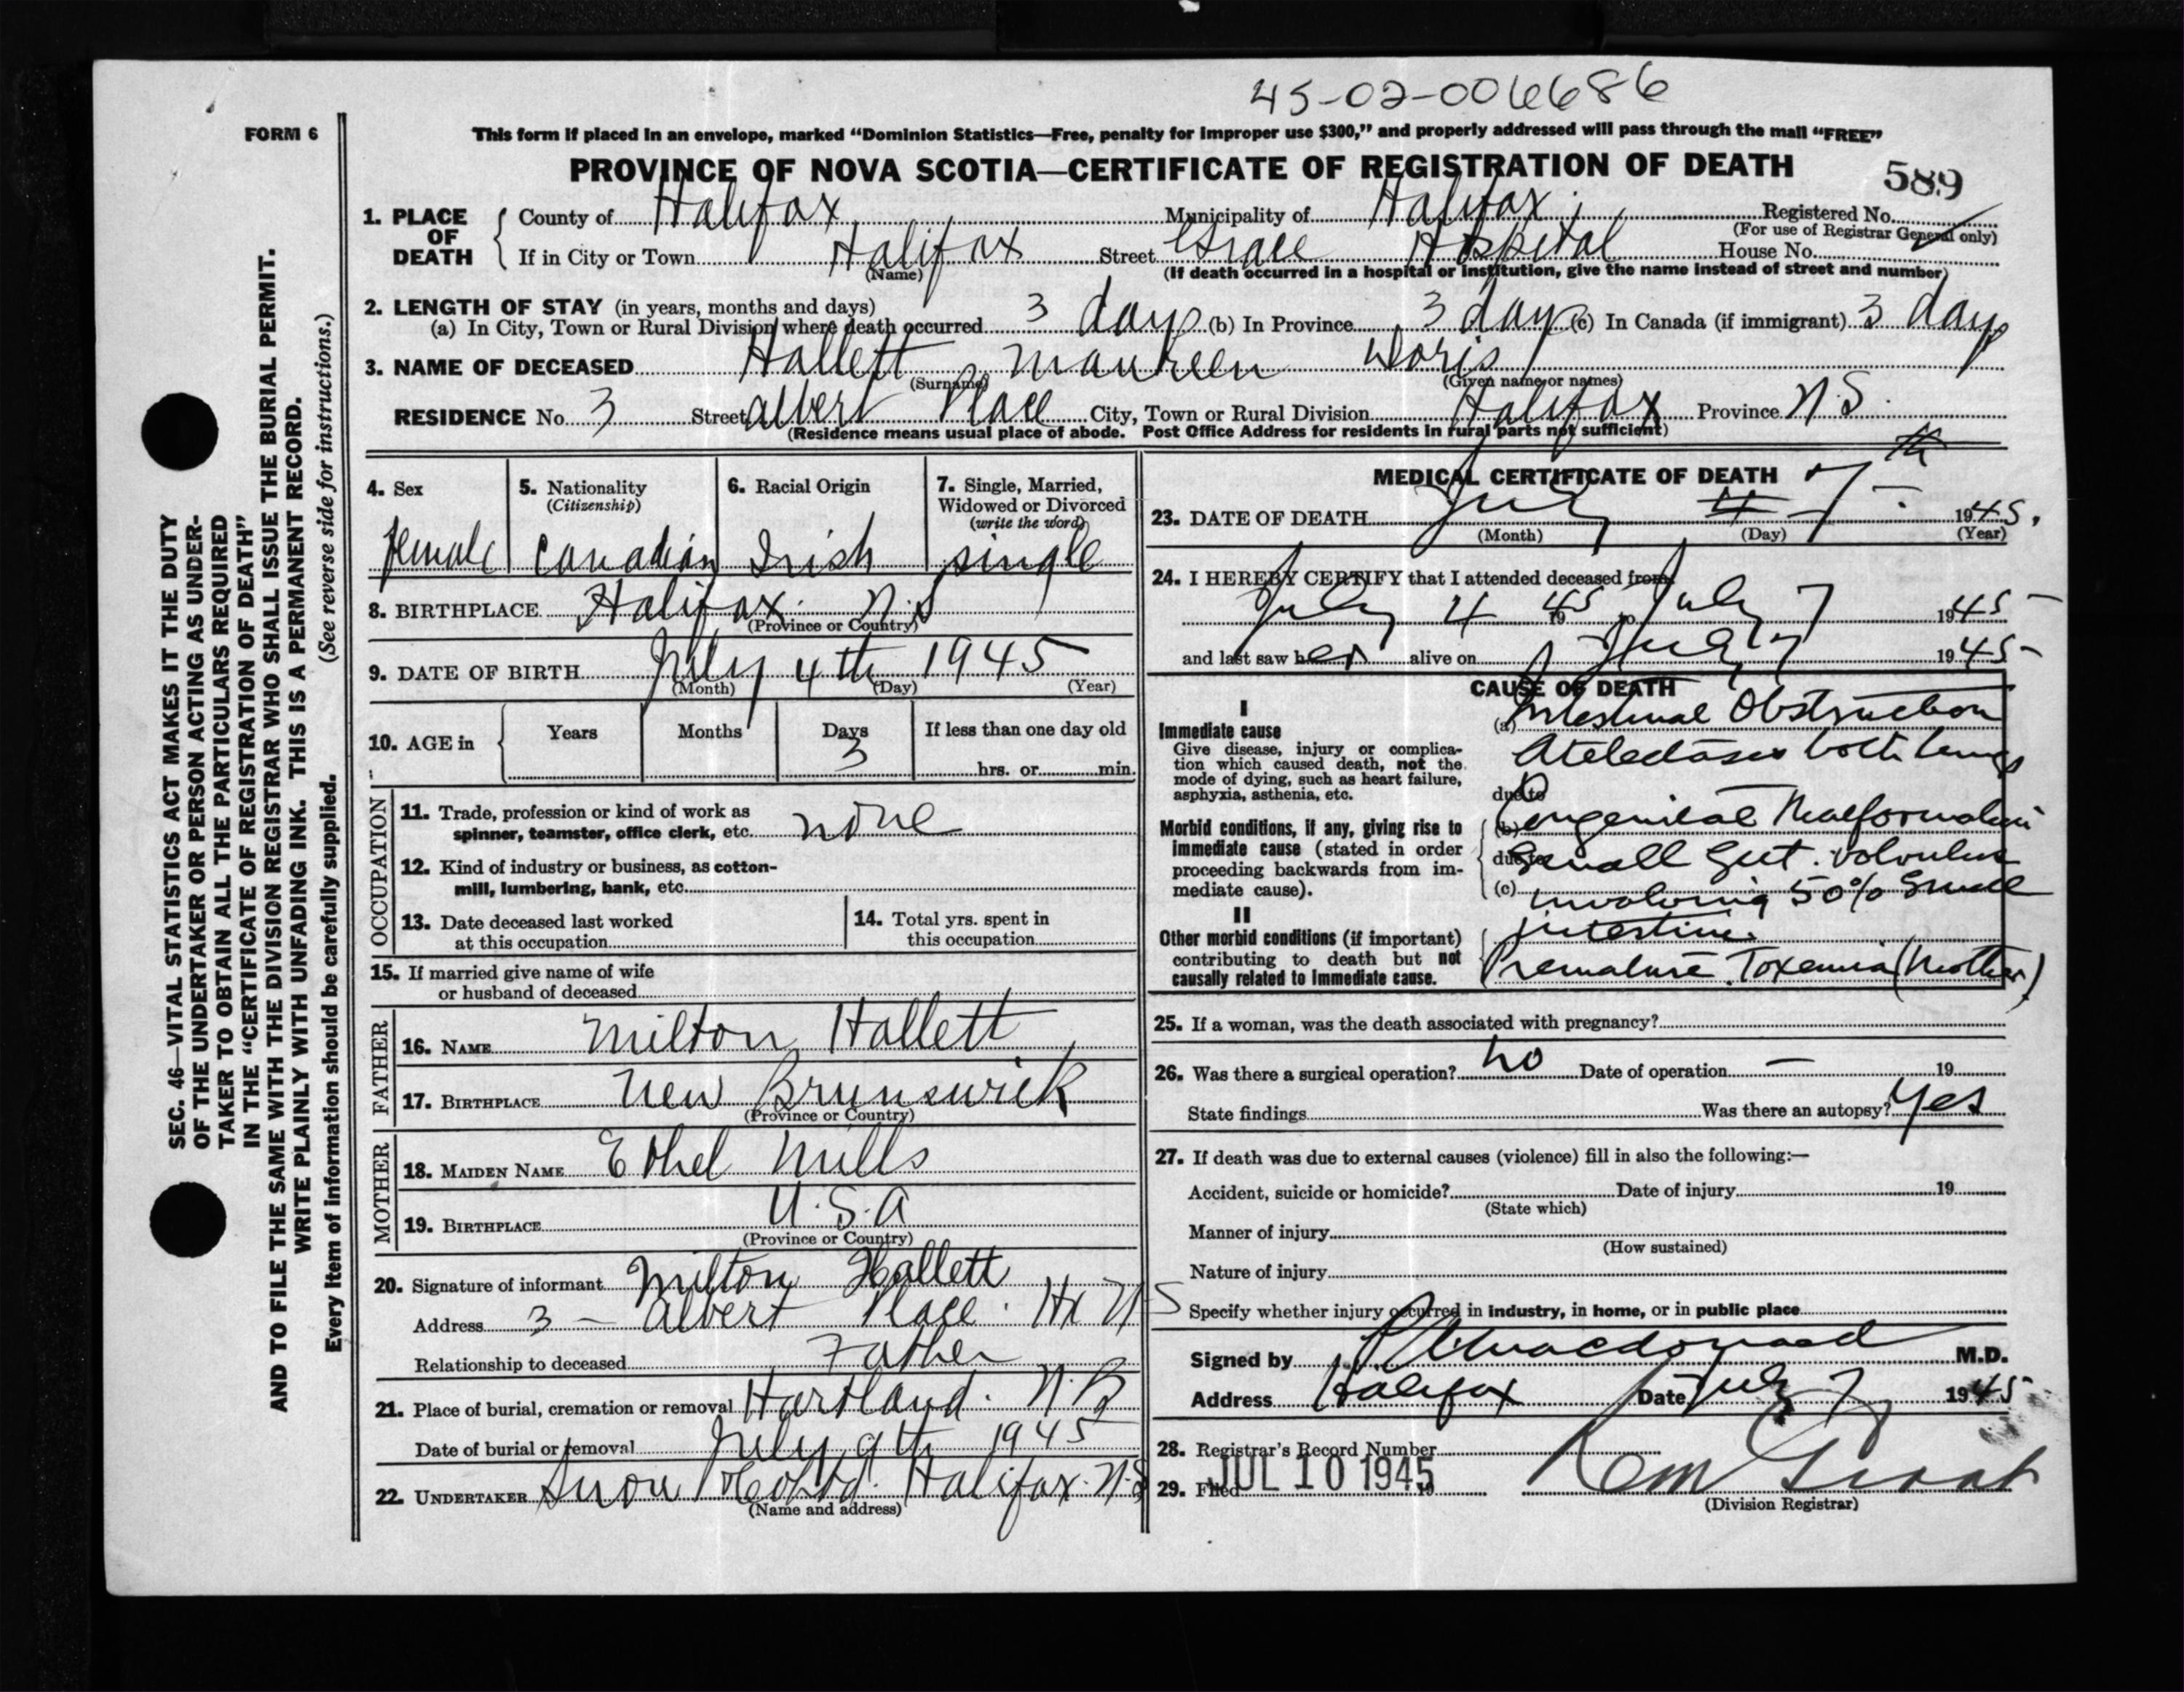 45-02-006686
FORM 6
This form if placed in an envelope, marked "Dominion Statistics—Free, penalty for improper use $300," and properly addressed will pass through the mail "FREE"
PROVINCE OF NOVA SCOTIA—CERTIFICATE OF REGISTRATION OF DEATH
589
1. PLACE OF DEATH
County of Halifax Municipality of Halifax Registered No.
(For use of Registrar General only)
If in City or Town Halifax Street Grace Hospital House No.
(Name) (If death occurred in a hospital or institution, give the name instead of street and number)
2. LENGTH OF STAY (in years, months and days)
(a) In City, Town or Rural Division where death occurred 3 days (b) In Province 3 days (c) In Canada (if immigrant) 3 days
3. NAME OF DECEASED Hallett Maureen Doris
(Surname) (Given name or names)
RESIDENCE No. 3 Street Albert Place City, Town or Rural Division Halifax Province N.S.
(Residence means usual place of abode. Post Office Address for residents in rural parts not sufficient)
4. Sex
Female
5. Nationality
(Citizenship)
Canadian
6. Racial Origin
Irish
7. Single, Married,
Widowed or Divorced
(write the word)
single
8. BIRTHPLACE Halifax. N.S
(Province or Country)
9. DATE OF BIRTH July 4th 1945
(Month) (Day) (Year)
10. AGE in
Years
Months
Days
3
If less than one day old
hrs. or min.
OCCUPATION
11. Trade, profession or kind of work as
spinner, teamster, office clerk, etc. none
12. Kind of industry or business, as cotton-
mill, lumbering, bank, etc.
13. Date deceased last worked
at this occupation
14. Total yrs. spent in
this occupation
15. If married give name of wife
or husband of deceased
FATHER
16. NAME Milton Hallett
17. BIRTHPLACE New Brunswick
(Province or Country)
MOTHER
18. MAIDEN NAME Ethel Mills
19. BIRTHPLACE U.S.A
(Province or Country)
20. Signature of informant Milton Hallett
Address 3 - Albert Place. Hx N S
Relationship to deceased Father
21. Place of burial, cremation or removal Hartland. N.B
Date of burial or removal July 9th 1945
22. UNDERTAKER Snow & Co Ltd. Halifax. N.S
(Name and address)
MEDICAL CERTIFICATE OF DEATH
23. DATE OF DEATH July 7th 1945.
(Month) (Day) (Year)
24. I HEREBY CERTIFY that I attended deceased from
July 4 1945 to July 7 1945
and last saw her alive on July 7 1945
CAUSE OF DEATH
I
Immediate cause
Give disease, injury or complica-
tion which caused death, not the
mode of dying, such as heart failure,
asphyxia, asthenia, etc.
(a) Intestinal Obstruction
Atelectasis both lungs
due to
Morbid conditions, if any, giving rise to
immediate cause (stated in order
proceeding backwards from im-
mediate cause).
(b) Congenital Malformation
due to Small Gut. volvulus
(c) involving 50% Small
intestine.
II
Other morbid conditions (if important)
contributing to death but not
causally related to immediate cause.
Premature. Toxemia (Mother)
25. If a woman, was the death associated with pregnancy?
26. Was there a surgical operation? no Date of operation — 19
State findings Was there an autopsy? Yes
27. If death was due to external causes (violence) fill in also the following:—
Accident, suicide or homicide? Date of injury 19
(State which)
Manner of injury
(How sustained)
Nature of injury
Specify whether injury occurred in industry, in home, or in public place
Signed by Macdonald M.D.
Address Halifax Date July 7 1945
28. Registrar's Record Number
29. Filed JUL 10 1945 19
(Division Registrar)
SEC. 46—VITAL STATISTICS ACT MAKES IT THE DUTY
OF THE UNDERTAKER OR PERSON ACTING AS UNDER-
TAKER TO OBTAIN ALL THE PARTICULARS REQUIRED
IN THE "CERTIFICATE OF REGISTRATION OF DEATH"
AND TO FILE THE SAME WITH THE DIVISION REGISTRAR WHO SHALL ISSUE THE BURIAL PERMIT.
WRITE PLAINLY WITH UNFADING INK. THIS IS A PERMANENT RECORD.
Every item of information should be carefully supplied. (See reverse side for instructions.)